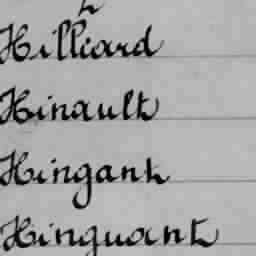 Hilliard
Hinault
Hingant
Hinguant